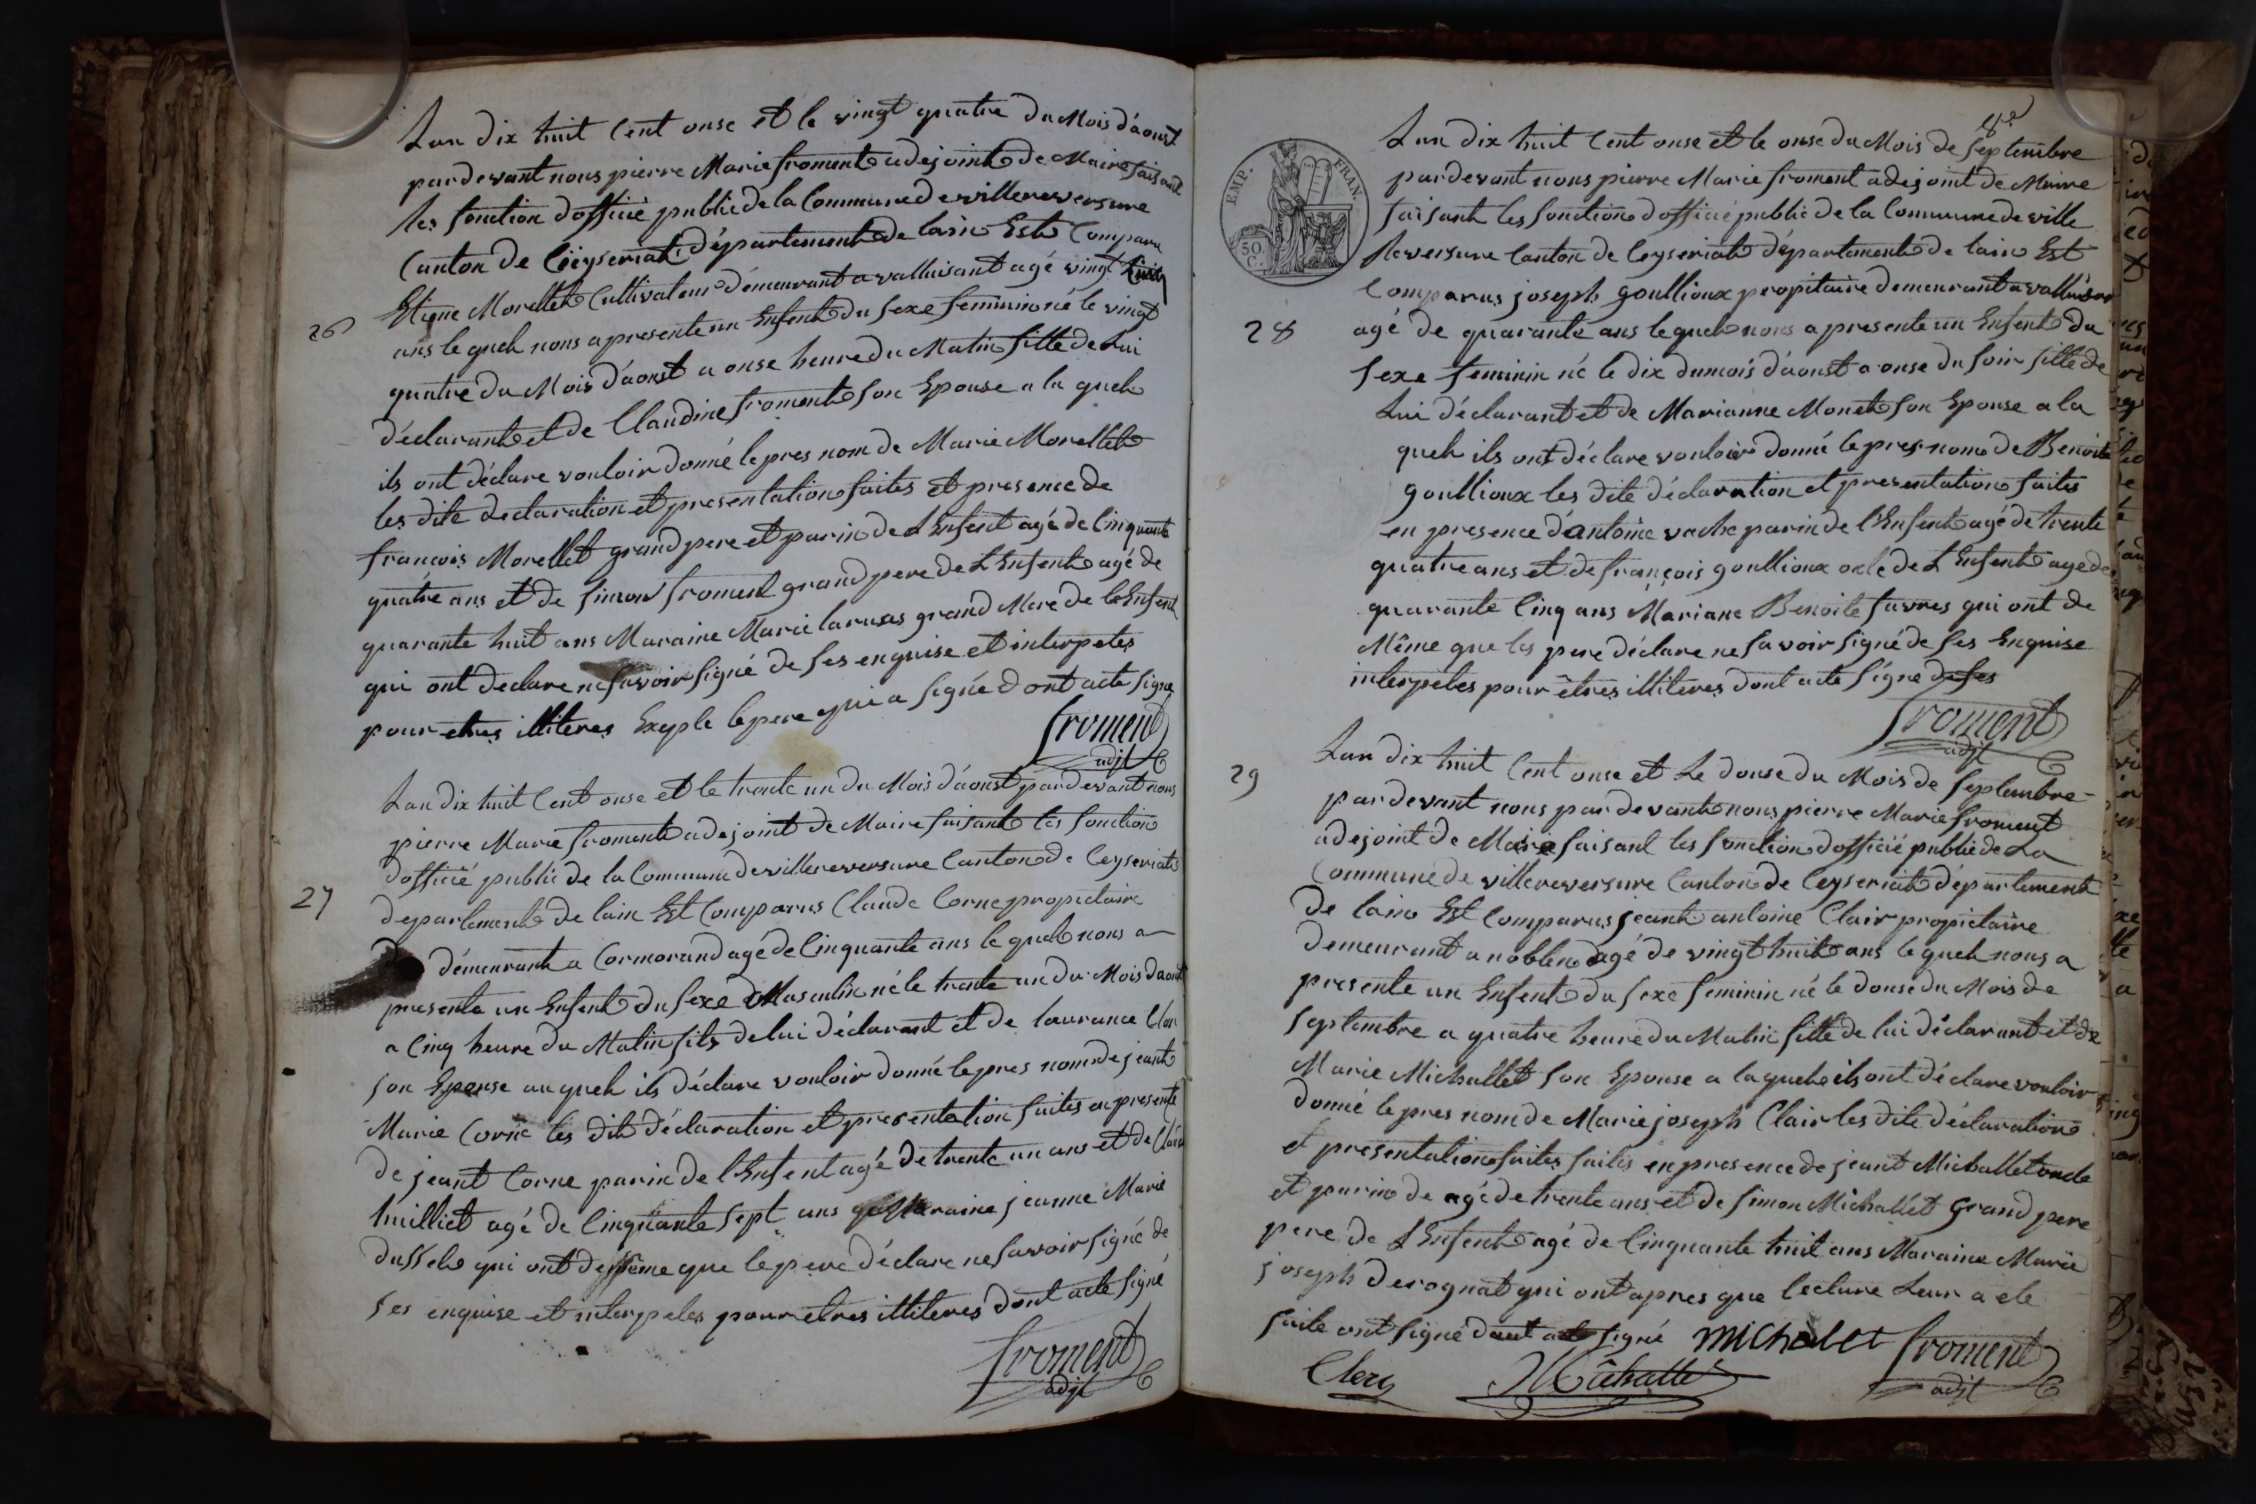 Lan dix huit Cent onse et le vingt quatre du Mois d'aoust
pardevant nous pierre Marie froment adejoint de Maire faisant
les fonction d'officié public de la Commune de villereversure
Canton de Ceyseriat département de lain Est Comparu
Etiene Morellet Cultivateur démeurant a valluisant agé vingt huit
26
ans le queh nous a presente un Enfent du sexe feminin né le vingt
quatre du Mois d'aoust a onse heure du Matin fille de Lui
déclarant et de Claudine froment son Epouse a la queh
ils ont déclare vouloir donné le pres nom de Marie Morellet
les dite declaration et presentation faites et presence de
francois Morellet grand pere et parin de L Enfent agé de Cinquante
quatre ans et de simon froment grand pere de L Enfent agé de
quarante huit ans Maraine Marie laruas grand Mere de L Enfent
qui ont declare ne savoir signé de ses enquise et interpeles
pour etres illiteres Exyple le pere qui a signé dont acte signe
froment
adjt
Lan dix huit Cent onse et le trente un du Mois d'aoust pardevant nous
pierre Marie froment adejoint de Maire faisant les fonction
d'officié public de la Commune de villereversure Canton de Ceyseriat
27
departement de lain Est Comparus Claude Corne propietaire
démeurant a Cormorand agé de Cinquante ans le queh nous a
presente un Enfent du sexe Masculin né le trente un du Mois daout
a Cinq heure du Matin fils de lui déclarant et de laurance Clair
son Epouse au queh ils déclare vouloir donné le pres nom de jeant
Marie Corne les dite déclaration et presentation faites en presente
de jeant Corne parin de l'Enfent agé de trente un ans et de
huilliet agé de Cinquante sept ans Maraine jeanne Marie
dusseh qui ont de Même que le pere déclare ne savoir signé de
ses enquise et interpeles pour etres illiteres dont acte signé
froment
adjt
EMP. FRAN.
50 C.
Lan dix huit Cent onse et le onse du Mois de septembre
pardevant nous pierre Marie froment adejoint de Maire
faisant les fonction d'officié public de la Commune de ville
Reversure Canton de Ceyseriat département de lain Est
Comparus joseph goullioux propitaire demeurant a valluisant
28
agé de quarante ans le queh nous a presente un Enfent du
sexe feminin né le dix du mois d'aoust a onse du soir fille de
Lui déclarant et de Marianne Monet son Epouse a la
queh ils ont déclare vouloir donné le pres nom de Benoite
goullioux les dite déclaration et presentation faites
en presence d'antoine vache parin de l'Enfent agé de trente
quatre ans et de françois goullioux oxle de L Enfent age de
quarante Cinq ans Mariane Benoite favres qui ont de
Même que les pere déclare ne savoir signé de ses Enquise
interpeles pour êtres illiteres dont acte signé de ses
froment
adjt
29
Lan dix huit Cent onse et Le douse du Mois de septembre
pardevant nous pardevant nous pierre Marie froment
adejoint de Maire faisant les fonction d'officié public de La
Commune de villereversure Canton de Ceyseriat département
de lain Est Comparus jeant antoine Clair propietaire
demeurant a noblen agé de vingt huit ans le queh nous a
presente un Enfent du sexe feminin né le douse du Mois de
septembre a quatre heure du Matin fille de lui déclarant et de
Marie Michallet son Epouse a la queh ils ont déclare vouloir
donné le pres nom de Marie joseph Clair les dite déclaration
et presentation faites faites en presence de jeant Michallet oncle
et parin de agé de trente ans et de simon Michallet grand pere
pere de L Enfent agé de Cinquante huit ans Maraine Marie
joseph derognat qui ont apres que lecture Leur a ete
faite ont signé dont acte signé Michalet froment
Clerc Michallé adjt